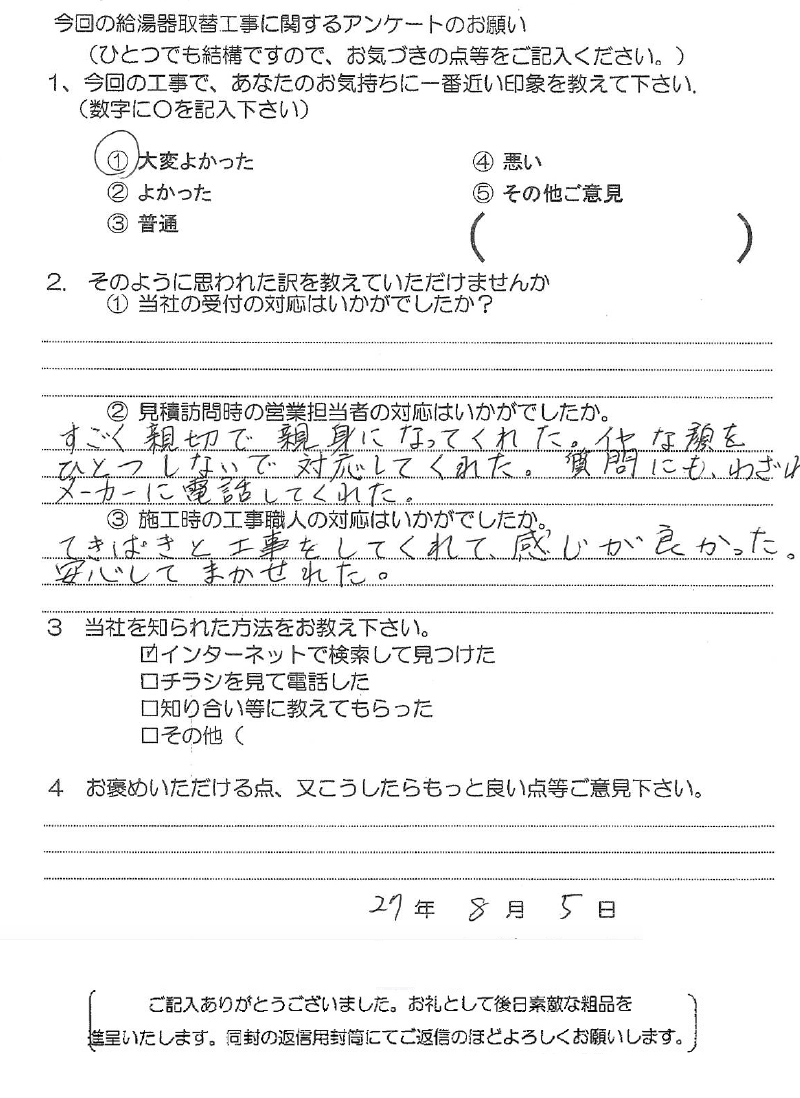 今回の給湯器取替工事に関するアンケートのお願い
（ひとつでも結構ですので、お気づきの点等をご記入ください。）
1、今回の工事で、あなたのお気持ちに一番近い印象を教えて下さい.
（数字に〇を記入下さい）
① 大変よかった
② よかった
③ 普通
④ 悪い
⑤ その他ご意見
（ ）
2. そのように思われた訳を教えていただけませんか
① 当社の受付の対応はいかがでしたか？
② 見積訪問時の営業担当者の対応はいかがでしたか。
すごく親切で親身になってくれた。イヤな顔を
ひとつしないで対応してくれた。質問にも、わざわ
メーカーに電話してくれた。
③ 施工時の工事職人の対応はいかがでしたか。
てきぱきと工事をしてくれて、感じが良かった。
安心してまかせれた。
3 当社を知られた方法をお教え下さい。
☑インターネットで検索して見つけた
□チラシを見て電話した
□知り合い等に教えてもらった
□その他（
4 お褒めいただける点、又こうしたらもっと良い点等ご意見下さい。
27年 8月 5日
ご記入ありがとうございました。お礼として後日素敵な粗品を
進呈いたします。同封の返信用封筒にてご返信のほどよろしくお願いします。